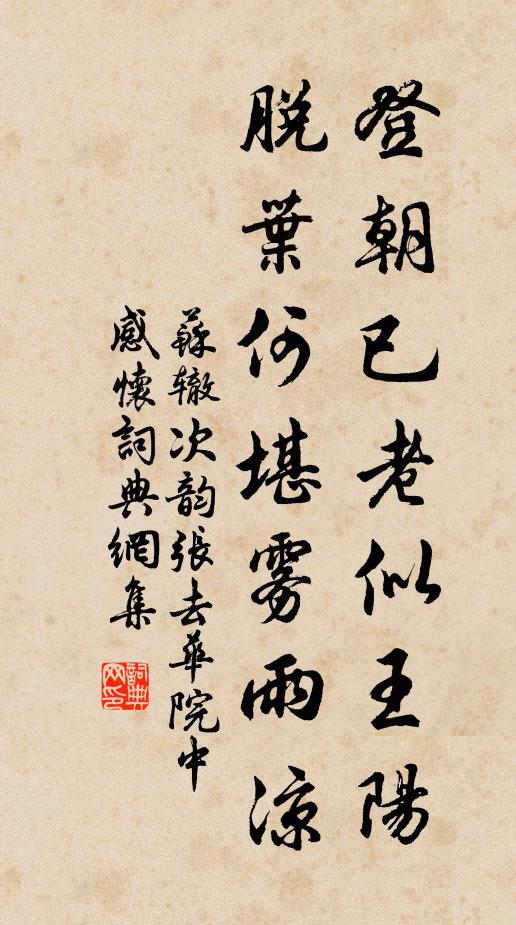 登朝已老似王陽
脫葉何堪霧雨涼
蘇辙次韵張去華院中
感懷詞典網集
詞典
网印